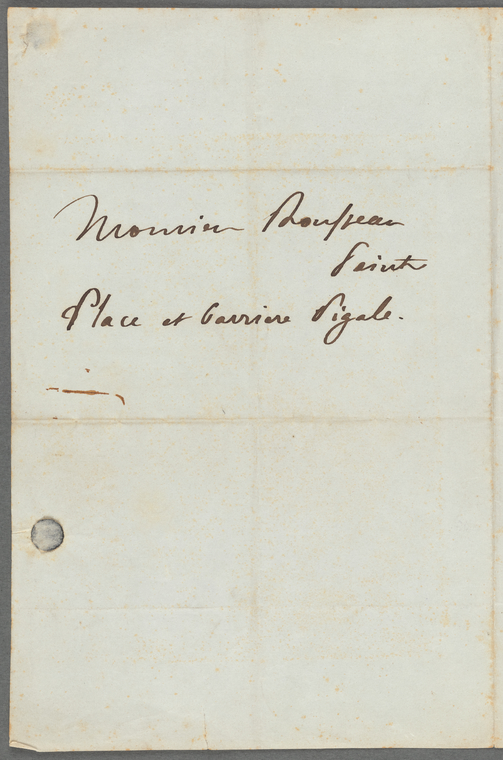 Monsieur Rousseau
Peintre
Place et barriere Pigale.